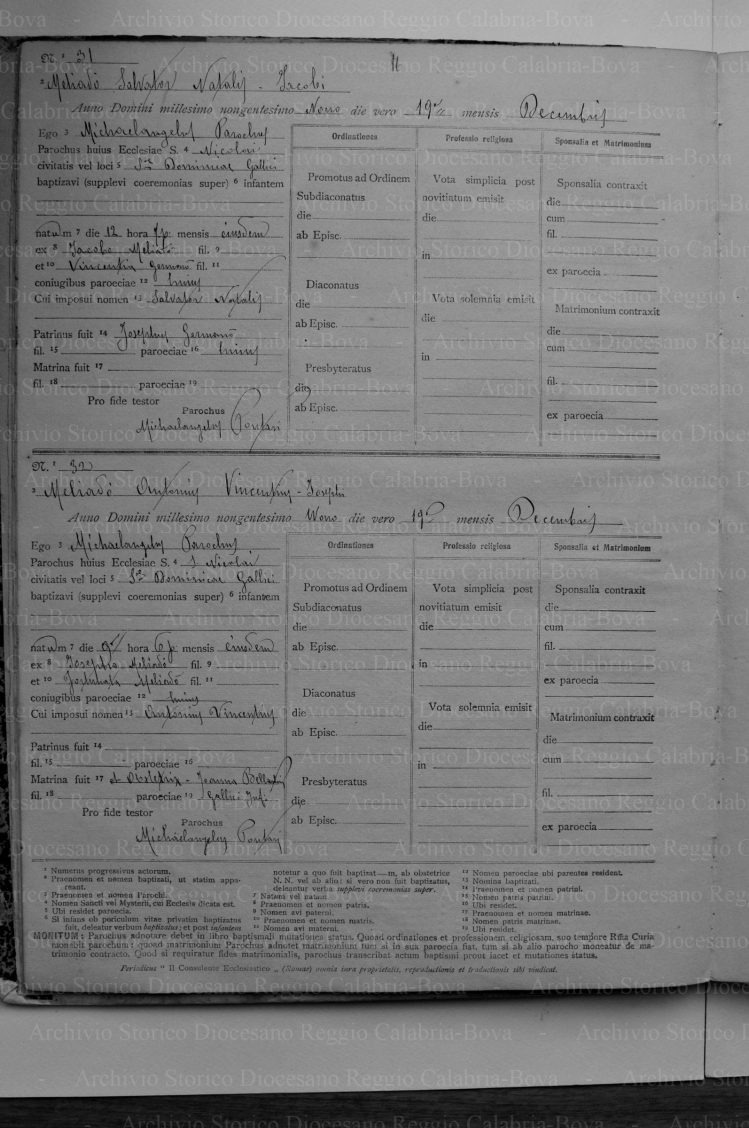 Archivio Storico Diocesano Reggio Calabria-Bova
N.¹ 31
² Meliadò Salvator Natalis - Jacobi
Anno Domini millesimo nongentesimo Nono die vero 19 mensis Decembris
Ego ³ Michaelangelus Parochus
Parochus huius Ecclesiae S. ⁴ Nicolai
civitatis vel loci ⁵ Dominicae Gallici
baptizavi (supplevi coeremonias super) ⁶ infantem
natum ⁷ die 12 hora 7 p. mensis eiusdem
ex ⁸ Jacobo Meliadò fil. ⁹
et ¹⁰ Vincentia Germanò fil. ¹¹
coniugibus paroeciae ¹² huius
Cui imposui nomen ¹³ Salvator Natalis
Patrinus fuit ¹⁴ Josephus Germanò
fil. ¹⁵ paroeciae ¹⁶ huius
Matrina fuit ¹⁷
fil. ¹⁸ paroeciae ¹⁹
Pro fide testor
Parochus
Michaelangelus
Ordinationes
Promotus ad Ordinem
Subdiaconatus
die
ab Episc.
Diaconatus
die
ab Episc.
Presbyteratus
die
ab Episc.
Professio religiosa
Vota simplicia post
novitiatum emisit
die
in
Vota solemnia emisit
die
in
Sponsalia et Matrimonium
Sponsalia contraxit
die
cum
fil.
ex paroecia
Matrimonium contraxit
die
cum
fil.
ex paroecia
N.¹ 32
² Meliadò Antonius Vincentius - Josephi
Anno Domini millesimo nongentesimo Nono die vero 19 mensis Decembris
Ego ³ Michaelangelus Parochus
Parochus huius Ecclesiae S. ⁴ S. Nicolai
civitatis vel loci ⁵ Dominicae Gallici
baptizavi (supplevi coeremonias super) ⁶ infantem
natum ⁷ die 9 hora 6 p. mensis eiusdem
ex ⁸ Josepho Meliadò fil. ⁹
et ¹⁰ Fortunata Meliadò fil. ¹¹
coniugibus paroeciae ¹² huius
Cui imposui nomen ¹³ Antonius Vincentius
Patrinus fuit ¹⁴
fil. ¹⁵ paroeciae ¹⁶
Matrina fuit ¹⁷ et Obstetrix - Joanna
fil. ¹⁸ paroeciae ¹⁹ Gallici
Pro fide testor
Parochus
Michaelangelus
Ordinationes
Promotus ad Ordinem
Subdiaconatus
die
ab Episc.
Diaconatus
die
ab Episc.
Presbyteratus
die
ab Episc.
Professio religiosa
Vota simplicia post
novitiatum emisit
die
in
Vota solemnia emisit
die
in
Sponsalia et Matrimonium
Sponsalia contraxit
die
cum
fil.
ex paroecia
Matrimonium contraxit
die
cum
fil.
ex paroecia
¹ Numerus progressivus actorum.
² Praenomen et nomen baptizati, ut statim appareant.
³ Praenomen et nomen Parochi.
⁴ Nomen Sancti vel Mysterii, cui Ecclesia dicata est.
⁵ Ubi residet paroecia.
⁶ Si infans ob periculum vitae privatim baptizatus
fuit, deleatur verbum baptizatus; et post infantem
notetur a quo fuit baptizat—m, ab obstetrice
N. N. vel ab alio: si vero non fuit baptizatus,
deleantur verba: supplevi coeremonias super.
⁷ Natum vel natam
⁸ Praenomen et nomen patris.
⁹ Nomen avi paterni.
¹⁰ Praenomen et nomen matris.
¹¹ Nomen avi materni.
¹² Nomen paroeciae ubi parentes resident.
¹³ Nomina baptizati.
¹⁴ Praenomen et nomen patrini.
¹⁵ Nomen patris patrini.
¹⁶ Ubi residet.
¹⁷ Praenomen et nomen matrinae.
¹⁸ Nomen patris matrinae.
¹⁹ Ubi residet.
MONITUM: Parochus adnotare debet in libro baptismali mutationes status. Quoad ordinationes et professionem religiosam, suo tempore Rm̃a Curia
monebit parochum: quoad matrimonium Parochus adnotet matrimonium tum si in sua paroecia fiat, tum si ab alio parocho moneatur de matrimonio
contracto. Quod si requiratur fides matrimonialis, parochus transcribat actum baptismi prout iacet et mutationes status.
Periodicus " Il Consulente Ecclesiastico „ (Romae) omnia iura proprietatis, reproductionis et traductionis sibi vindicat.